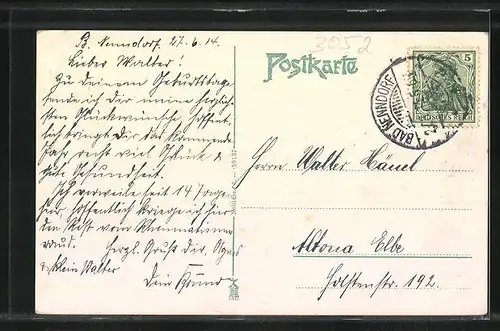 B. Nenndorf. 27.6.14.
Lieber Walter!
Zu deinem Geburtstage
sende ich dir meine herzlich-
sten Glückwünsche, hoffent-
lich bringt dir das kommende
Jahr recht viel Glück &
gute Gesundheit.
Ich verweile seit 14 Tagen
hier, hoffentlich kriege ich hier
den Rest vom Rheumatismus
raus. Herzl. Gruß dir,
& klein Walter
Dein Freund
Postkarte
3052
BAD NENNDORF
5
DEUTSCHES REICH
Herrn Walter Hänel
Altona Elbe
Holstenstr. 192.